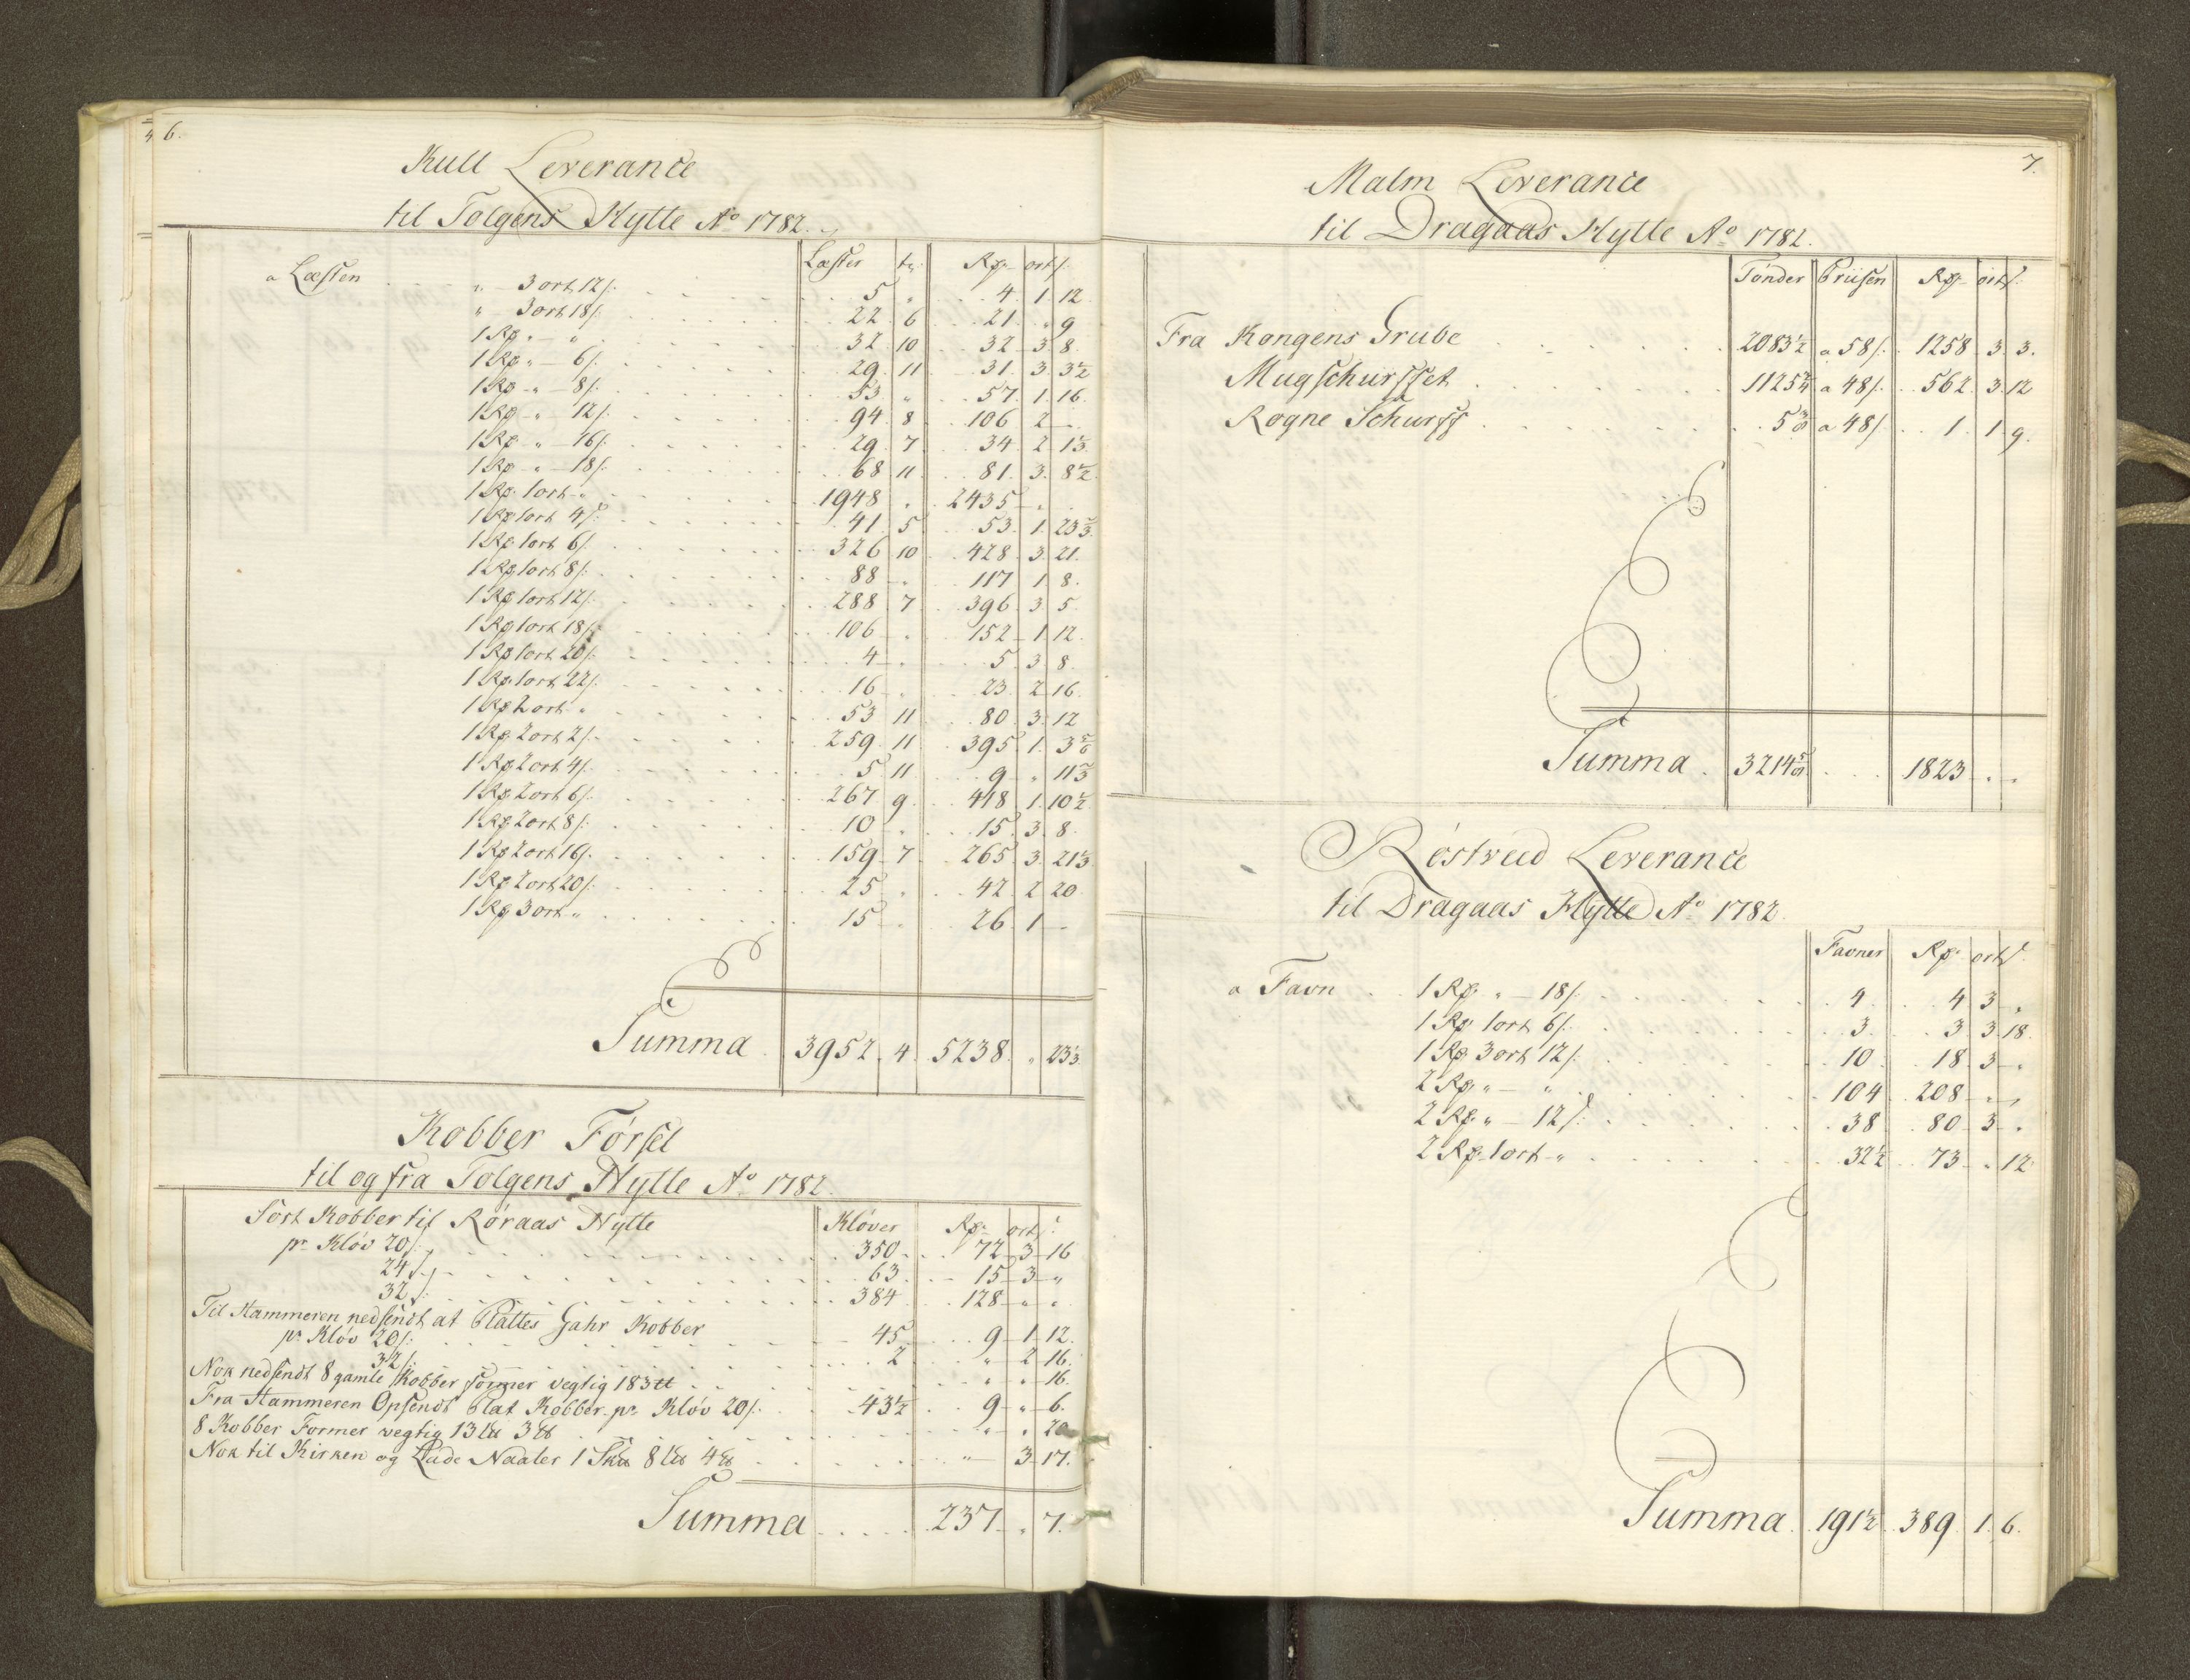 6.
Kull Leverance
til Tolgens Hytte Aº 1782.
Læster tr. Rg: ort s:
a Læsten " 3 ort 12 s: 5 " 4 1 12
" 3 ort 18 s: 22 6 21 " 9
1 Rg " " 32 10 32 3 8
1 Rg " 6 s: 29 11 31 3 3½
1 Rg " 8 s: 53 " 57 1 16
1 Rg " 12 s: 94 8 106 2 -
1 Rg " 16 s: 29 7 34 2 1⅓
1 Rg " 18 s: 68 11 81 3 8½
1 Rg 1 ort " 1948 " 2435 " "
1 Rg 1 ort 4 s: 41 5 53 1 23⅔
1 Rg 1 ort 6 s: 326 10 428 3 21
1 Rg 1 ort 8 s: 88 " 117 1 8
1 Rg 1 ort 12 s: 288 7 396 3 5
1 Rg 1 ort 18 s: 106 " 152 1 12
1 Rg 1 ort 20 s: 4 " 5 3 8
1 Rg 1 ort 22 s: 16 " 23 2 16
1 Rg 2 ort " 53 11 80 3 12
1 Rg 2 ort 2 s: 259 11 395 1 3⅚
1 Rg 2 ort 4 s: 5 11 9 " 11⅔
1 Rg 2 ort 6 s: 267 9 418 1 10½
1 Rg 2 ort 8 s: 10 " 15 3 8
1 Rg 2 ort 16 s: 159 7 265 3 21⅓
1 Rg 2 ort 20 s: 25 " 42 2 20
1 Rg 3 ort " 15 " 26 1 -
Summa 3952 4 5238 " 23⅓
Kobber Førsel
til og fra Tolgens Hytte Aº 1782.
Sort Kobber til Røraas Hytte Kløver Rg: ort s:
pr Kløv 20 s: 350 72 3 16
24 s: 63 15 3 "
32 s: 384 128 " "
Til Hammeren nedsendt at Plattes Gahr Kobber
pr Kløv 20 s: 45 9 1 12
32 s: 2 " 2 16
Nok nedsendt 8 gamle Kobber former vegtig 183 ℔ " " 16
Fra Hammeren Opsendt Plat Kobber pr Kløv 20 s: 43½ 9 " 6
8 Kobber Former vegtig 13 L℔ 3 ℔ " " 20
Nok til Kirken og Lade Naaler 1 Sk℔ 8 L℔ 4 ℔ " 3 17
Summa 237 " 7
7.
Malm Leverance
til Dragaas Hytte Aº 1782.
Tønder Priisen Rg: ort s:
Fra Kongens Grube 2083½ a 58 s: 1258 3 3
Mugschurffet 1125¾ a 48 s: 562 3 12
Rogne Schurff 5⅜ a 48 s: 1 1 9
Summa 3214⅝ 1823 " "
Røstveed Leverance
til Dragaas Hytte Aº 1782
Favner Rg: ort s:
a Favn 1 Rg " 18 s: 4 4 3 "
1 Rg 1 ort 6 s: 3 3 3 18
1 Rg 3 ort 12 s: 10 18 3 "
2 Rg " " 104 208 " "
2 Rg " 12 s: 38 80 3 "
2 Rg 1 ort " 32½ 73 " 12
Summa 191½ 389 1 6